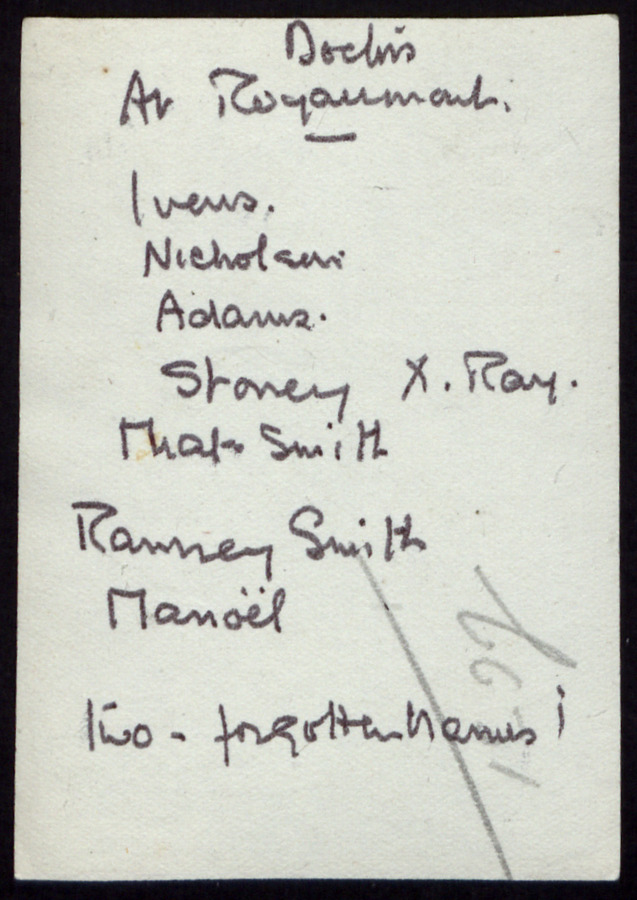 Doctors
At Royaumont.
Ivens.
Nicholson
Adams.
Stoney X. Ray.
Smith
Ramsey Smith
Manoël
Two - forgotten names!